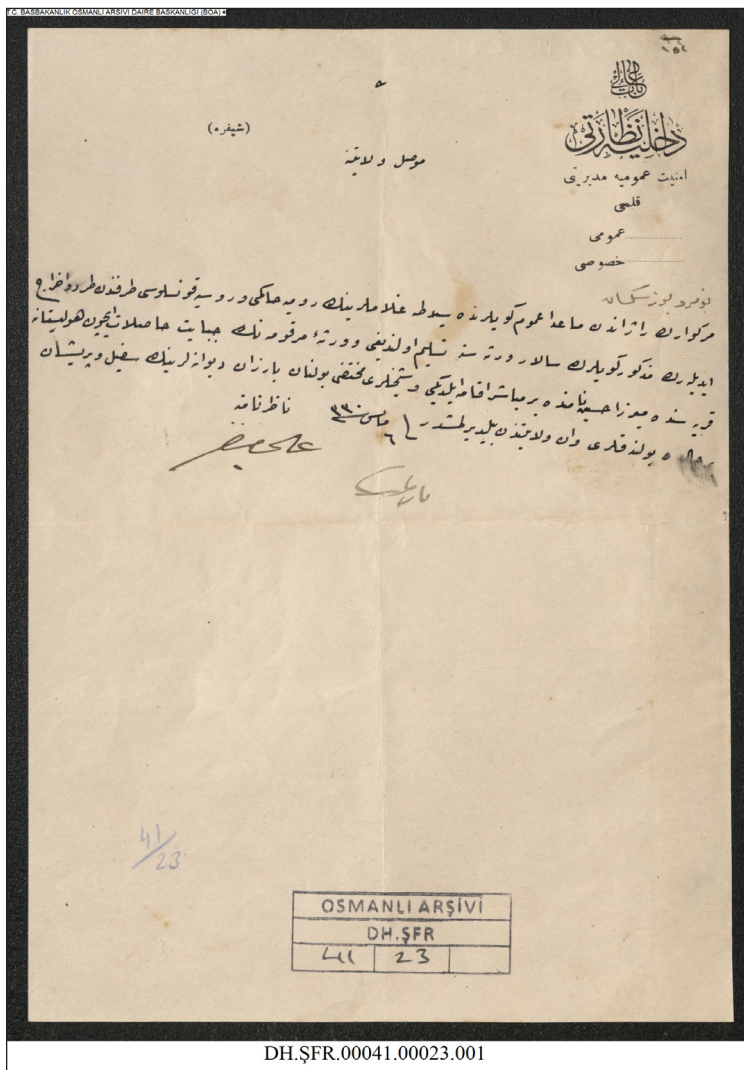 T.C. BAŞBAKANLIK OSMANLI ARŞİVİ DAİRE BAŞKANLIĞI (BOA)
باب عالی
داخلیه نظارتی
امنیت عمومیه مدیریتی
قلمی
عمومی
خصوصی
(شیفره)
موصل ولایتنه
مرکوارك راژاندن ماعدا عموم کویلرنده سیدطه غلاملرینك رومیه حاکمی وروسیه قونسلوسی طرفندن طرد و اخراج
ایدیلرك مذکور کویلرك سالار ورثه سنه تسلیم اولندیغی وورثهٔ مرقومه نك جبایت حاصلات ایچون هولستانه
قریه سنده میرزا حسین نامنده بر مباشر اقامه ایلدیکی وشیخلری مختفی بولنان بارزان دیوانه لرینك سفیل وپریشان
بر حالده بولندقلری وان ولایتندن بیلدیرلمشدر
٦ مارس ٣٣٠
ناظر نامنه
41/23
OSMANLI ARŞİVİ
DH.ŞFR
41 23
DH.ŞFR.00041.00023.001